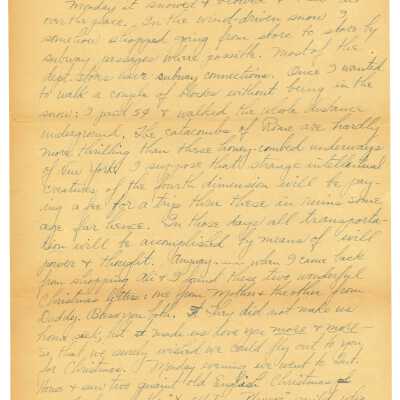 Monday it snowed & blowed &
over the place. In the wind-driven snow I
somehow shopped going from store to store by
subway passages where possible. Most of the
dept. stores have subway connections. Once I wanted
to walk a couple of blocks without being in the
snow: I paid 5¢ & walked the whole distance
underground. The catacombs of Rome are hardly
more thrilling than those honey-combed underways
of New York. I suppose that strange intellectual
creatures of the fourth dimension will be pay-
ing a fee for a trip thru these in ruins some
age far hence. In those days all transporta-
tion will be accomplished by means of will
power & thought. Anyway--- when I came back
from shopping Ali & I found these two wonderful
Christmas letters: one from Mother & the other from
Daddy. Bless you John. They did not make us
home sick, but it made us love you more & more—
so that we surely wished we could fly out to you
for Christmas. Monday evening we went to
House & saw two quaint old English Christmas